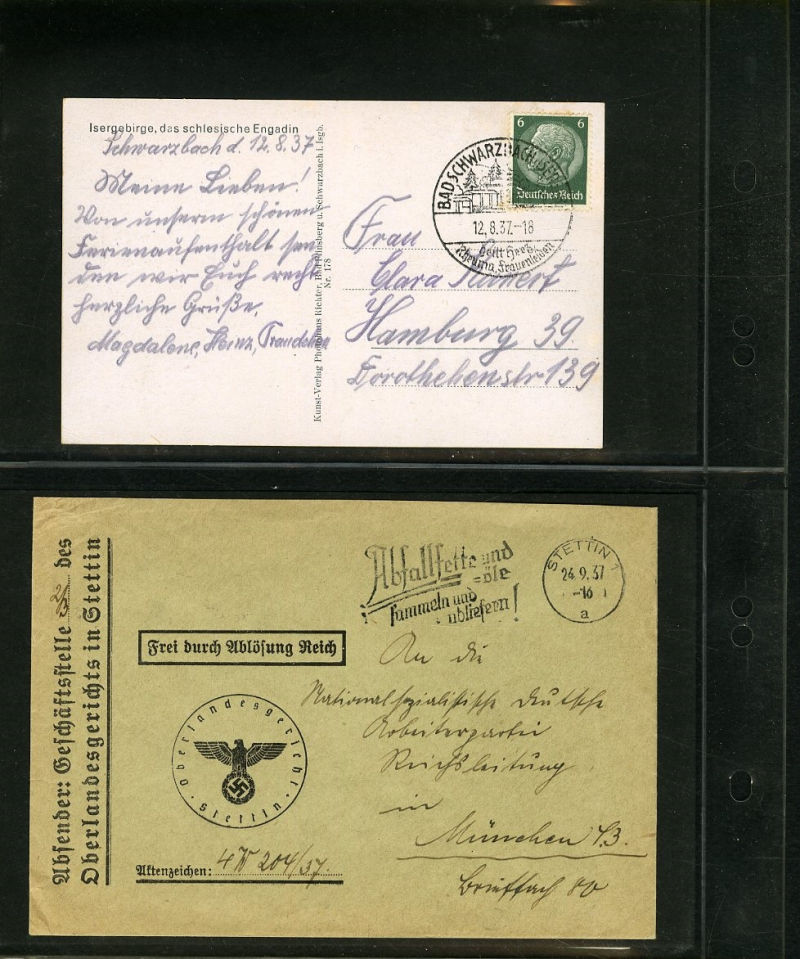 Isergebirge, das schlesische Engadin
Schwarzbach d. 12.8.37
Meine Lieben!
Von unserm schönen
Ferienaufenthalt sen
den wir Euch recht
herzliche Grüße.
Magdalene, Heinz,
Kunst-Verlag Photohaus Richter, Bad Flinsberg u. Schwarzbach i. Isgb.
Nr. 178
6 6
Deutsches Reich
BAD SCHWARZBACH
12.8.37.-18
heilt Herz,
Rheuma, Frauenleiden
Frau
Clara
Hamburg 39.
Dorotheenstr 139
Absender: Geschäftsstelle des
Oberlandesgerichts in Stettin
Abfallfette und
=öle
sammeln und
abliefern!
STETTIN 1
24.9.37
a
Frei durch Ablösung Reich
Oberlandesgericht
Stettin
Aktenzeichen: 4 W 204/37.
An die
Nationalsozialistische Deutsche
Arbeiterpartei
Reichsleitung
in
München
Brieffach 80